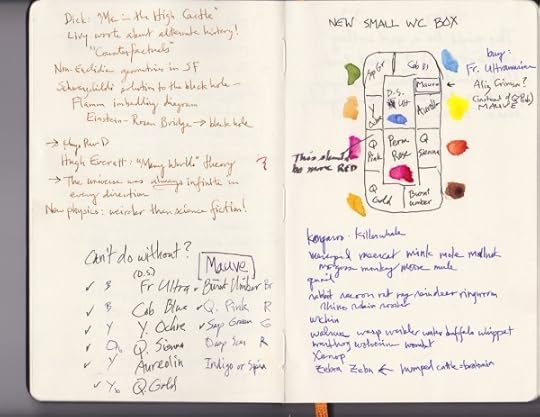 Dick: "Man in the High Castle"
Livy wrote about alternate history!
"Counterfactuals"
Non-Euclidian geometries in SF
Schwarzschild solution to the black hole -
Flamm imbedding diagram
Einstein-Rosen Bridge → black hole
→ Hays Pur D
Hugh Everett: "Many Worlds" theory ?
→ The universe was always infinite in
every direction.
New physics: weirder than science fiction!
Can't do without?
(D.S.)
Mauve
✓ B Fr Ultra ✓ Burnt Umber Br
✓ B Cob Blue ✓ Q. Pink R
✓ Y Y. Ochre ✓ Sap Green G
✓ O Q. Sienna Deep Scar R
✓ Y Aureolin Indigo or
✓ Yo Q. Gold
NEW SMALL WC BOX
Sap Gr
Cob Bl
Mauve
D.S.
Ult
Y
Ochre
Q
Pink
Perm
Rose
Q
Sienna
Q
Gold
Burnt
Umber
This should
be more RED
buy:
Fr. Ultramarine
← Aliz Crimson?
(instead of Q. Pink)
MAUVE
Kangaroo: Killerwhale
meercat mink mole mollusk
mongoose monkey moose mule
quail
rabbit racoon rat ray reindeer
rhino robin
urchin
walrus wasp warbler water buffalo whippet
warthog wolverine wombat
Xenop
Zebra Zebu ← humped cattle =